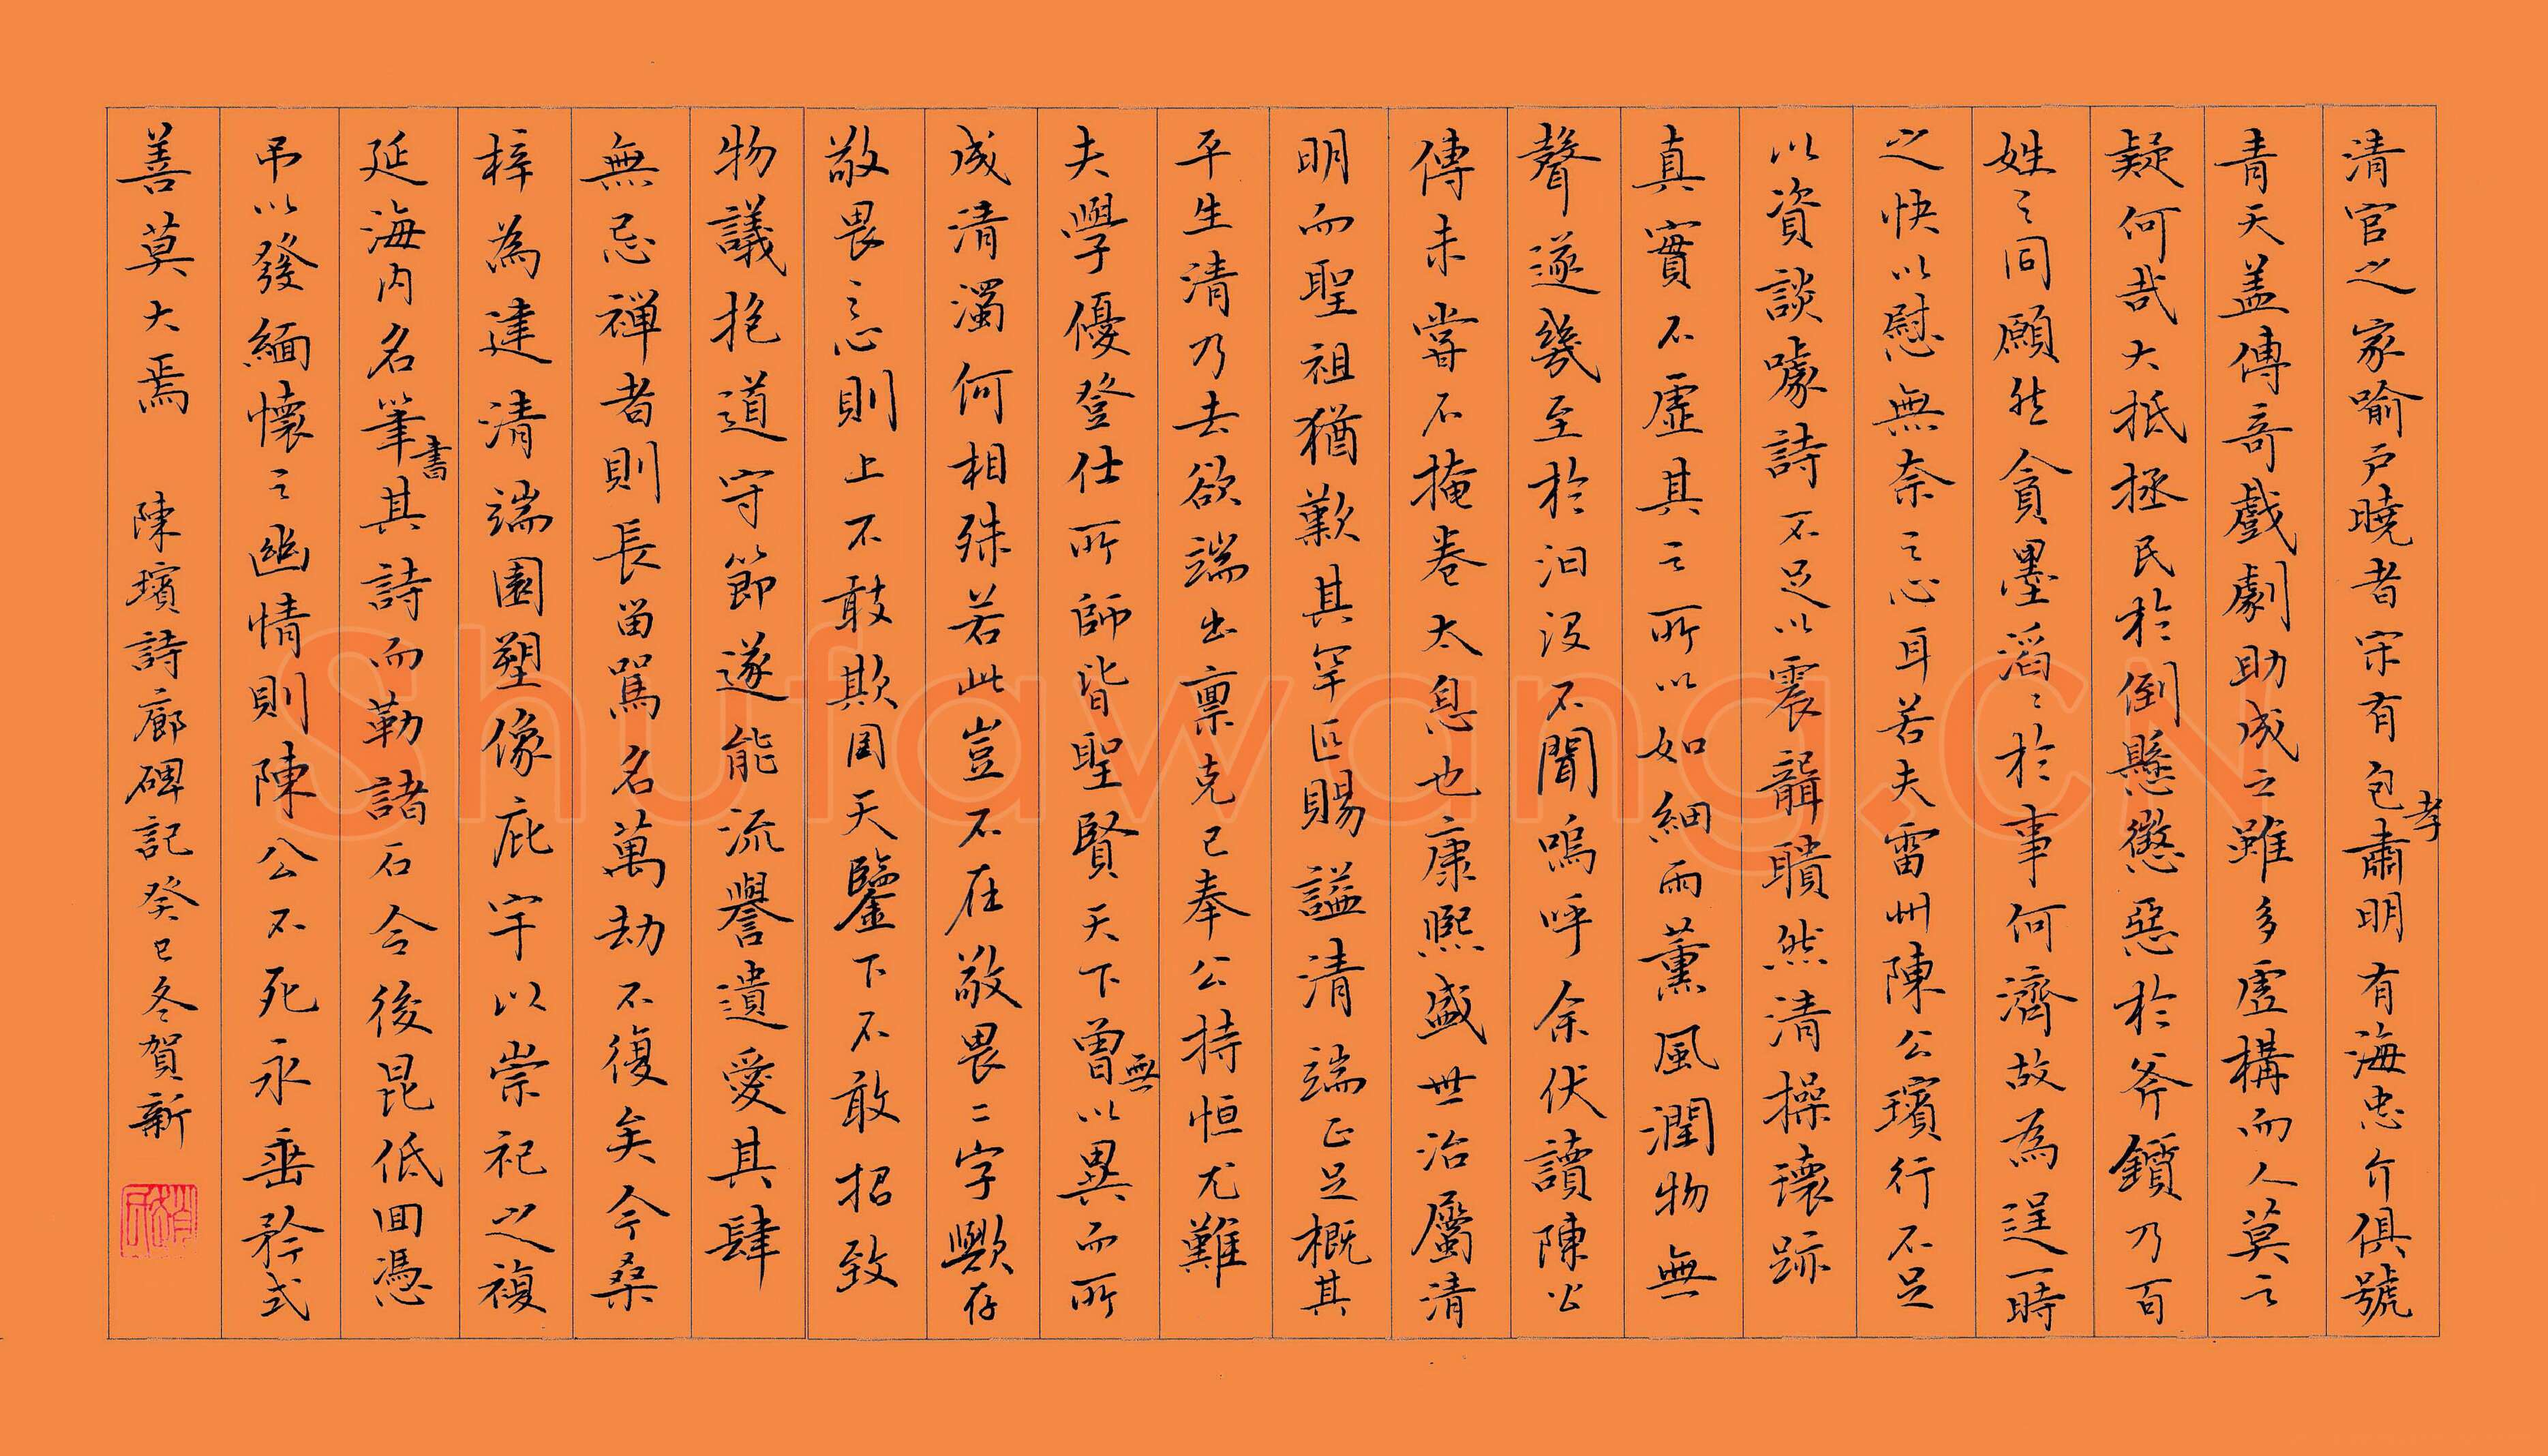 清官之家喻戶曉者宋有包孝肅明有海忠介俱號
青天蓋傳奇戲劇助成之雖多虛構而人莫之
疑何哉大抵拯民於倒懸懲惡於斧鑕乃百
姓之同願然貪墨滔滔於事何濟故為逞一時
之快以慰無奈之心耳若夫雷州陳公璸行不足
以資談噱詩不足以震聾聵然清操瓌跡
真實不虛其之所以如細雨薰風潤物無
聲遂幾至於汩沒不聞嗚呼余伏讀陳公
傳未嘗不掩卷太息也康熙盛世治屬清
明而聖祖猶歎其罕匹賜謚清端正足概其
平生清乃去欲端出稟克己奉公持恒尤難
夫學優登仕所師皆聖賢天下曾無以異而所
成清濁何相殊若此豈不在敬畏二字歟存
敬畏之心則上不敢欺罔天鑒下不敢招致
物議抱道守節遂能流譽遺愛其肆
無忌禪者則長留罵名萬劫不復矣今桑
梓為建清端園塑像庇宇以崇祀之複
延海內名筆書其詩而勒諸石令後昆低回憑
弔以發緬懷之幽情則陳公不死永垂矜式
善莫大焉 陳璸詩廊碑記癸巳冬賀新
Shufawang.CN